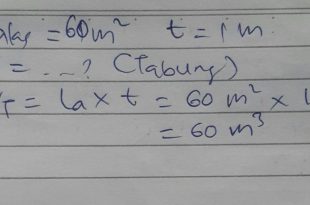 alas = 60 m² t = 1 m
= ...? (Tabung)
= La x t = 60 m² x 1
= 60 m³